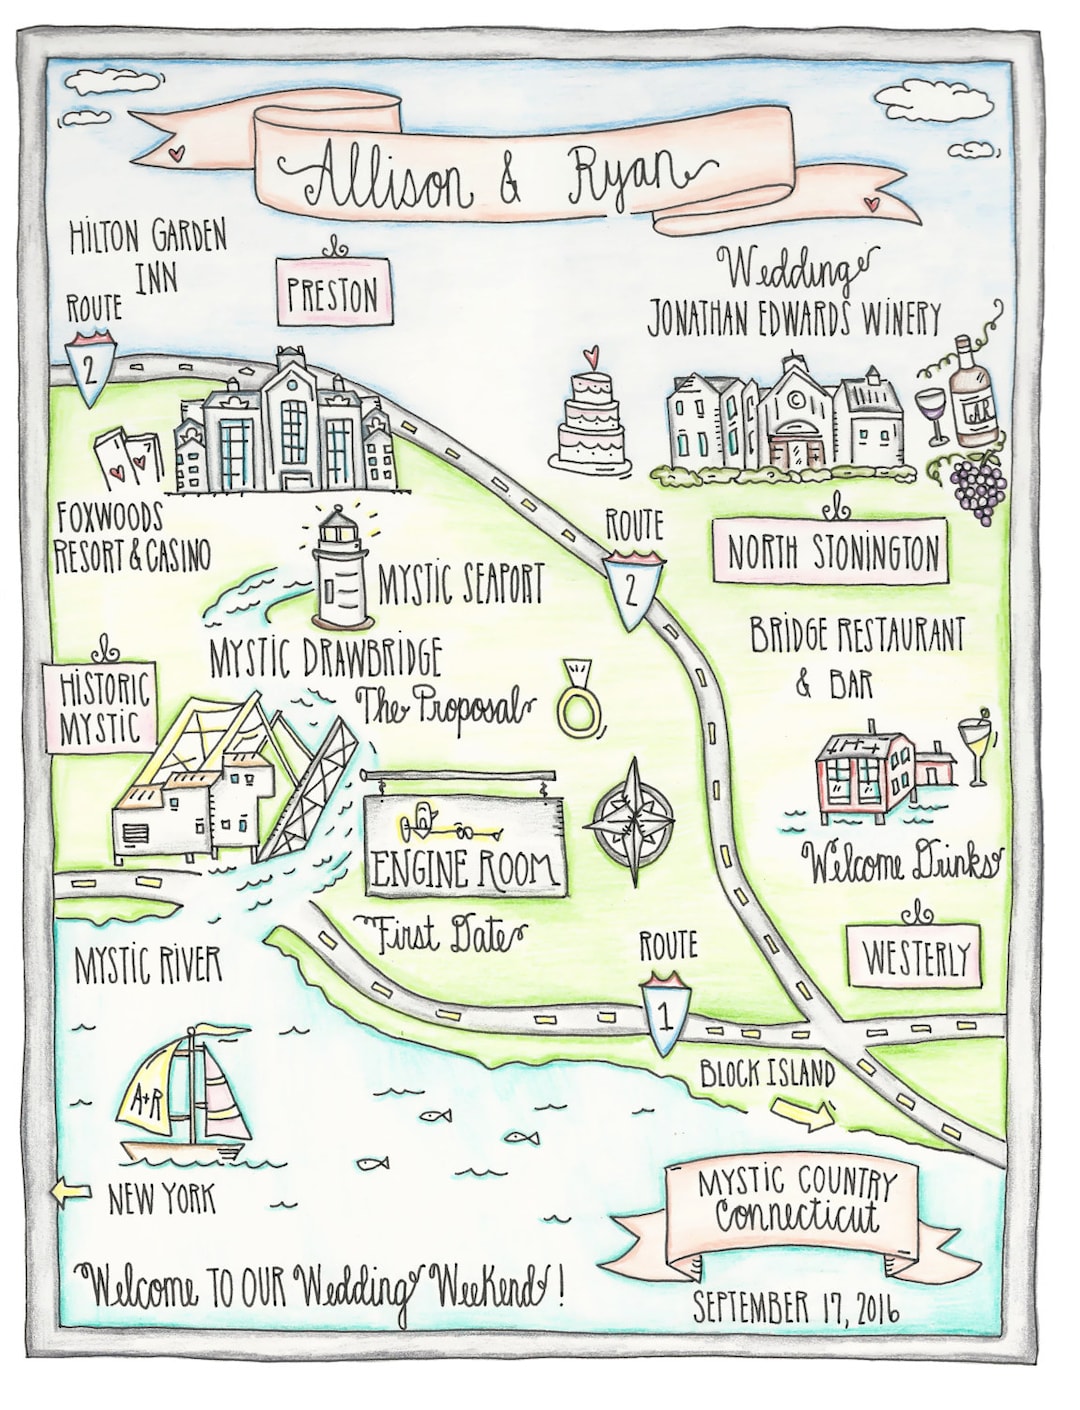 Allison & Ryan
HILTON GARDEN
INN
ROUTE
2
PRESTON
Wedding
JONATHAN EDWARDS WINERY
JAR
FOXWOODS
RESORT & CASINO
MYSTIC SEAPORT
ROUTE
2
NORTH STONINGTON
MYSTIC DRAWBRIDGE
The Proposal
HISTORIC
MYSTIC
BRIDGE RESTAURANT
& BAR
Welcome Drinks
ENGINE ROOM
First Date
WESTERLY
MYSTIC RIVER
ROUTE
1
BLOCK ISLAND
A+R
NEW YORK
MYSTIC COUNTRY
Connecticut
Welcome TO OUR Wedding Weekend!
SEPTEMBER 17, 2016